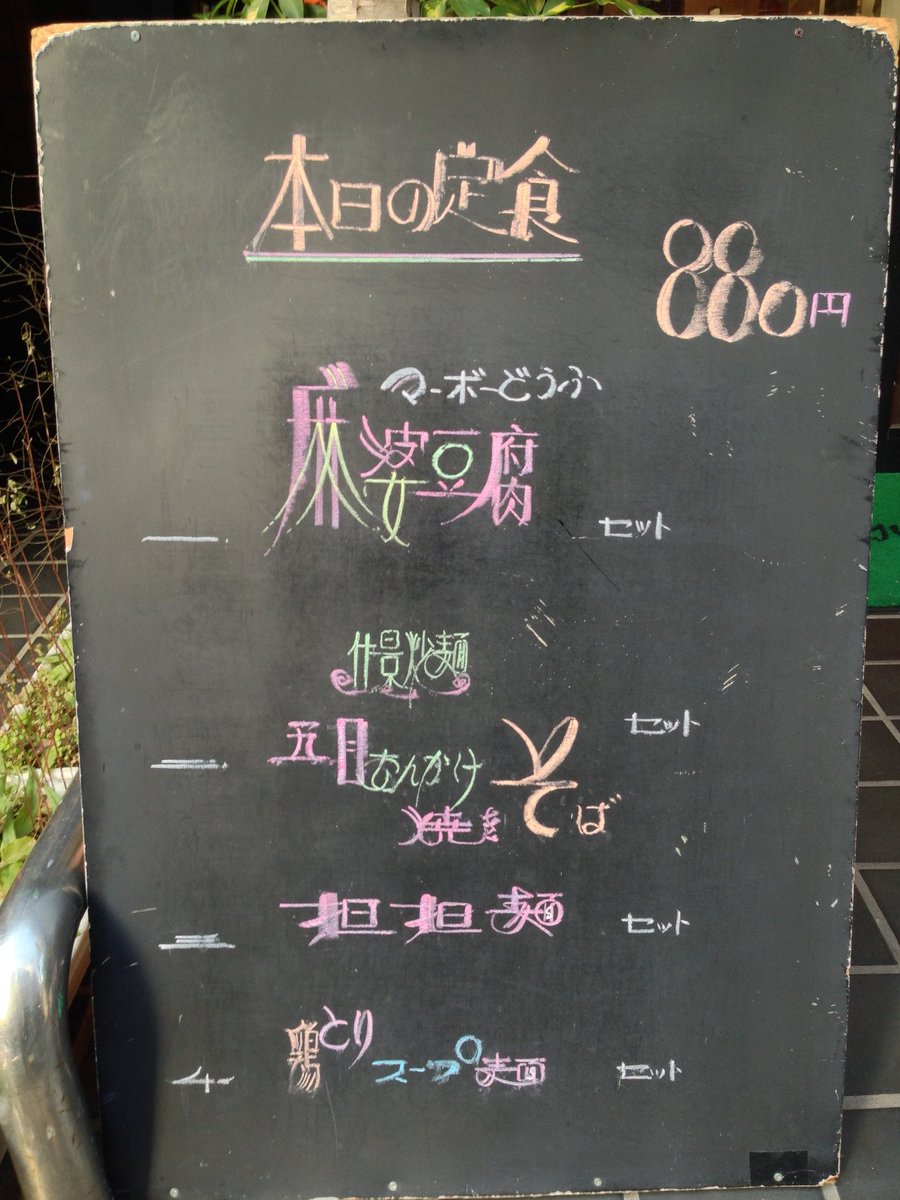 本日の定食
880円
マーボーどうふ
一 麻婆豆腐 セット
什景炒麺
二 五目あんかけ焼きそば セット
三 担担麺 セット
4 鶏とりスープ麺 セット